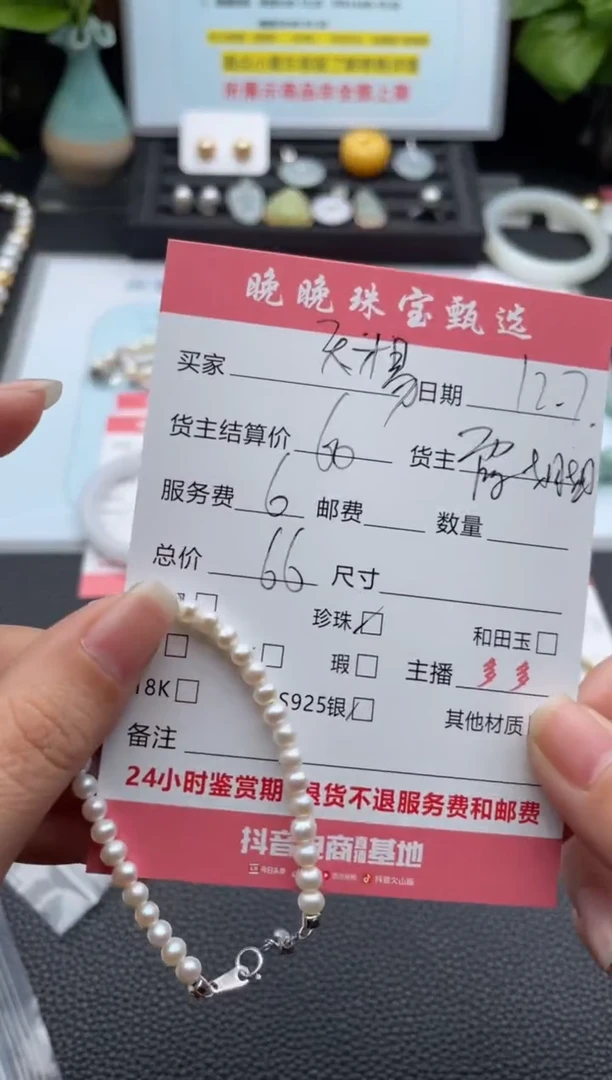 晚晚珠宝甄选
买家 天楊 日期 12.7.
货主结算价 60 货主
服务费 6 邮费 数量
总价 66 尺寸
珍珠 和田玉
瑕 主播 多多
18K S925银 其他材质
备注
24小时鉴赏期 退货不退服务费和邮费
抖音电商直播基地
今日头条 抖音火山版